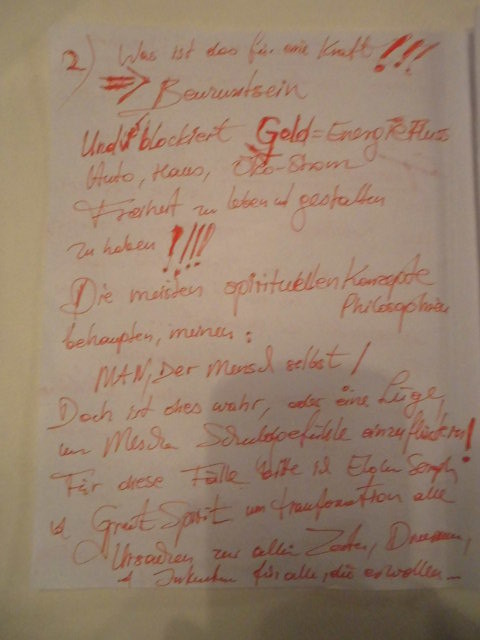 2) Was ist das für eine Kraft!!!
⇒ Bewusstsein
Und blockiert Geld = Energiefluss
Auto, Haus, Öko-Strom
Freiheit zu leben u gestalten
zu haben !!!!
Die meisten spirituellen Konzepte
Philosophien
behaupten, meinen:
MAN, Der Mensch selbst!
Doch ist dies wahr, oder eine Lüge,
um Schuldgefühle einzuflüstern!
Für diese Fälle bitte ich
Great Spirit um tranformation alle
Ursachen zu allen Zeiten,
für alle, die es wollen –